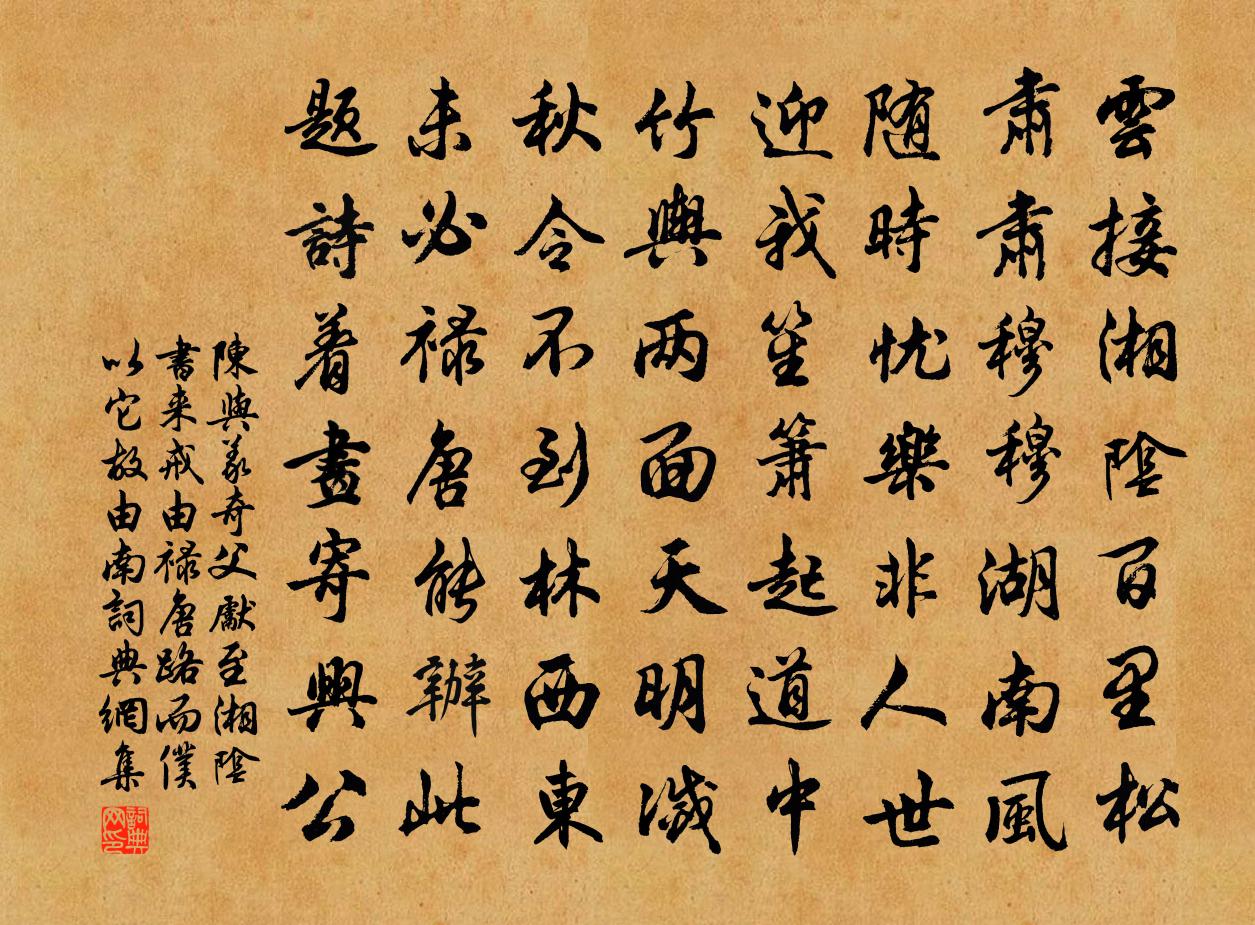 雲接湘陰百里松
肅肅穆穆湖南風
随時忧樂非人世
迎我笙簫起道中
竹輿两面天明滅
秋令不到林西東
未必禄唐能辦此
题詩着畫寄興公
陳與義奇父獻至湘陰
書来戒由禄唐路而僕
以它故由南詞典網集
詞典网印